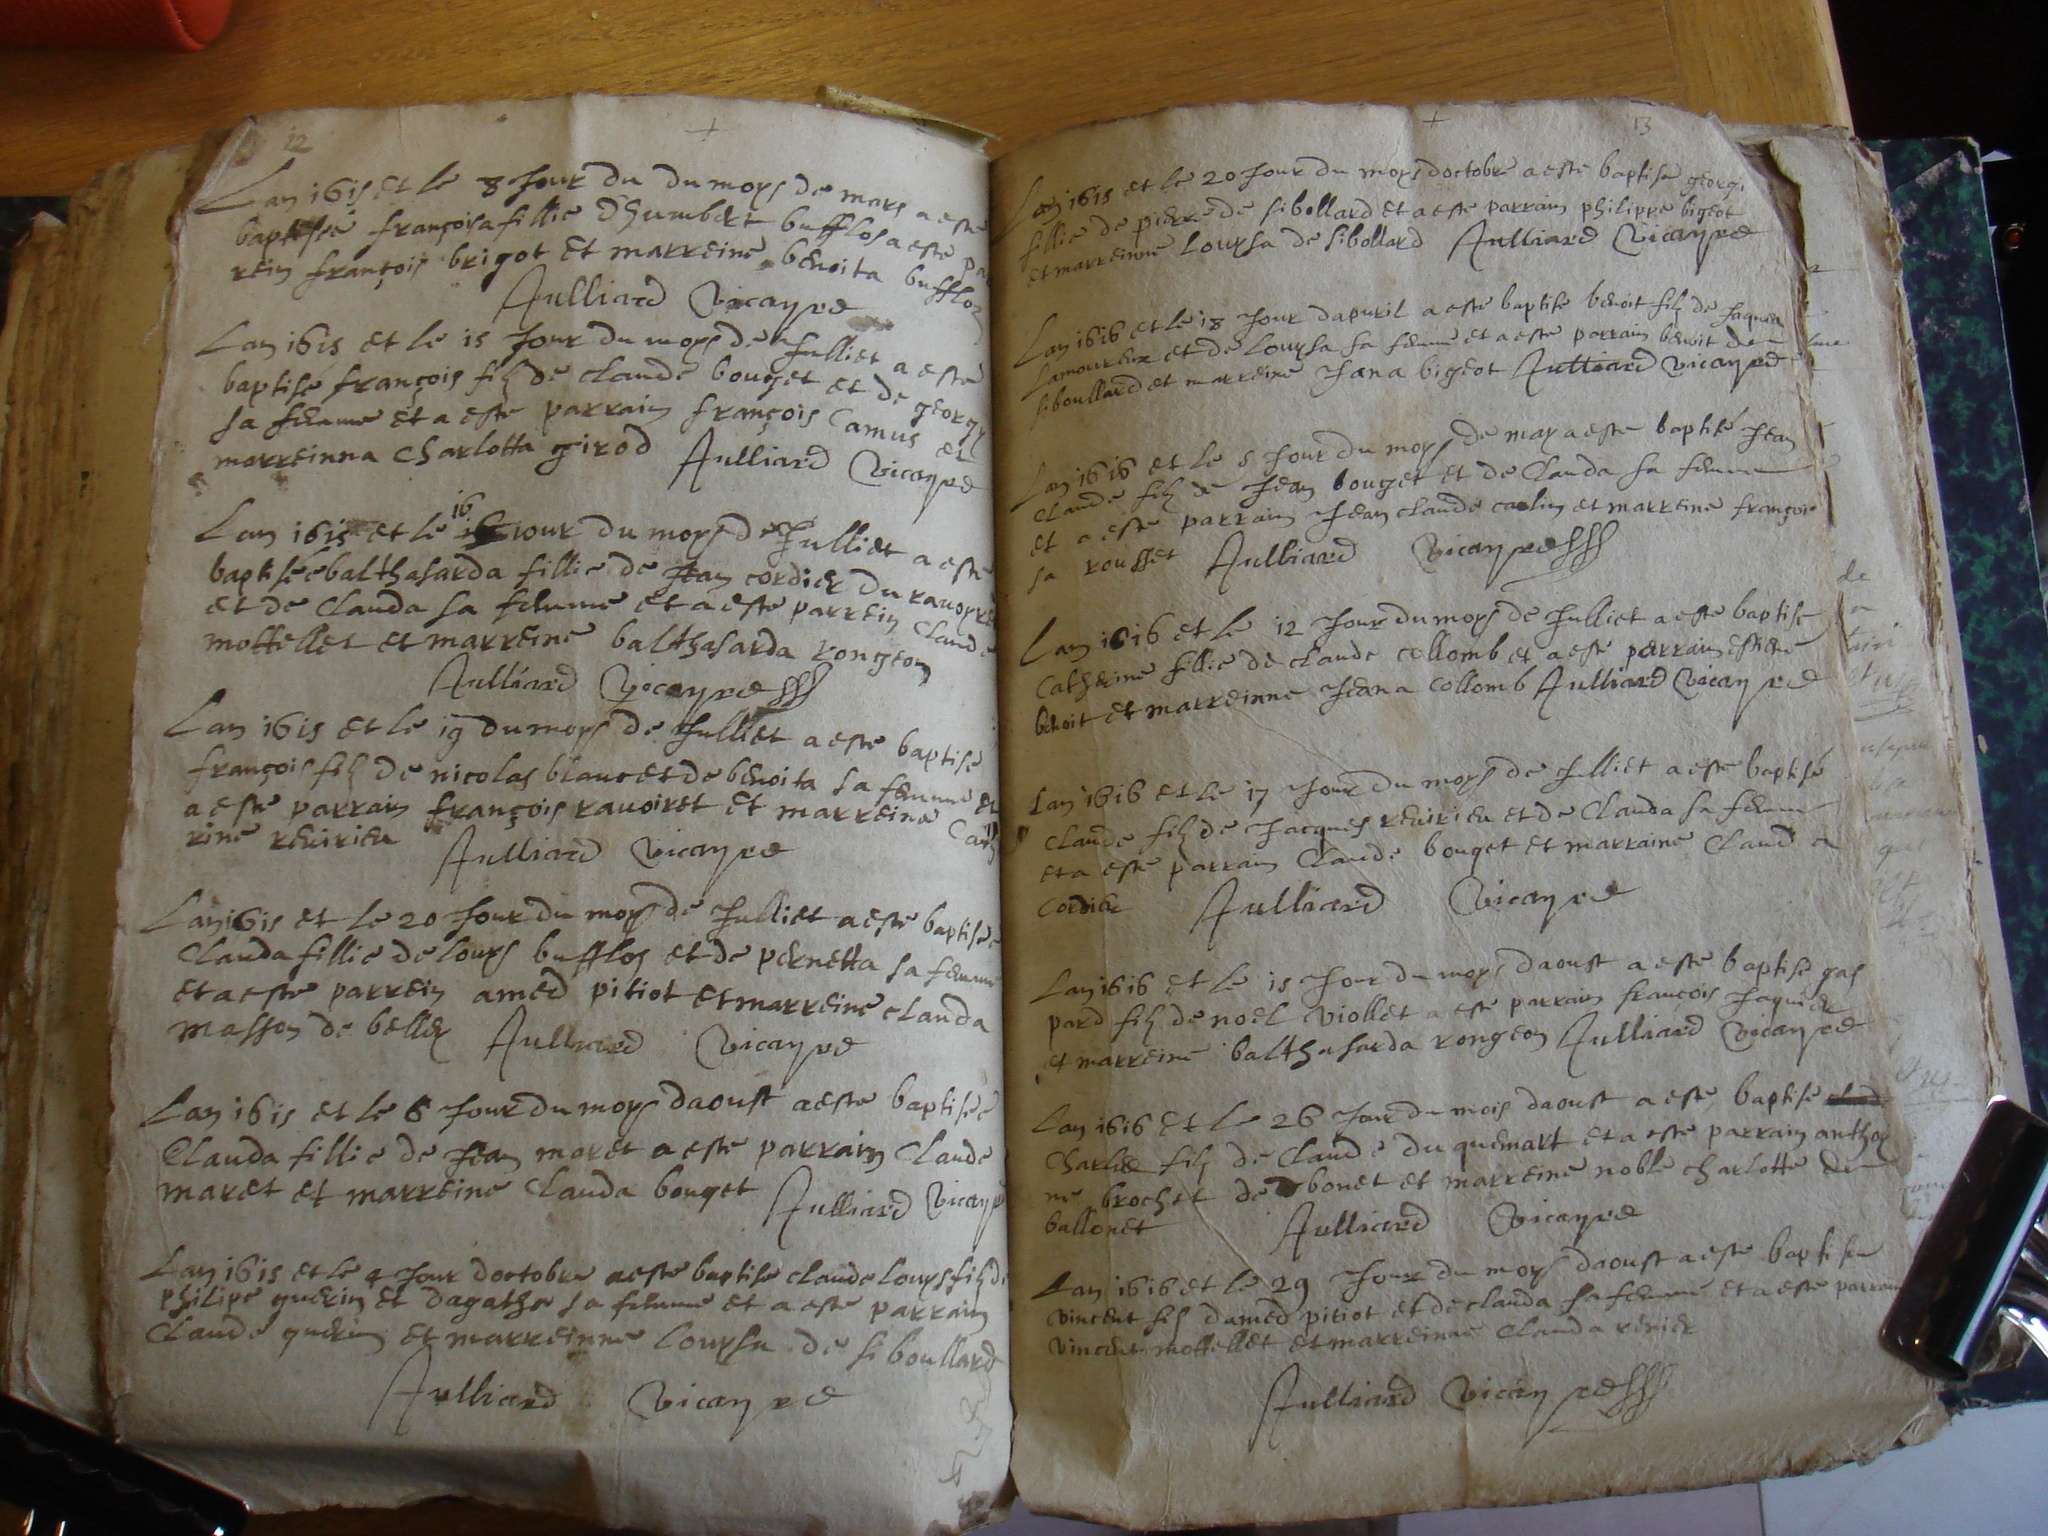 12
Lan 1615 et le 8 Jour du du moys de mars a este
baptisée françoisa fillie dhumbert bufflos a este pa
rein françois brigot et marreine benoita bufflos
Julliard vicayre
Lan 1615 et le 15 Jour du moys de Julliet a este
baptisé françois filz de claude bouget et de georgy
sa femme et a este parrain françois Camus et
marreinna Charlotta girod Julliard vicayre
16
Lan 1615 et le jour du moys de Julliet a este
baptisée balthasarda fillie de Jean cordier du rauoyre
et de Clauda sa femme et a este parrein Claude
mottellet et marreine balthasarda rongeon
Julliard vicayre
Lan 1615 et le 19 du moys de Julliet a este baptise
françois filz de nicolas blanc et de benoita sa femme et
a este parrain françois rauoiret et marreine Cathe
rine reuirieu Julliard vicayre
Lan 1615 et le 20 Jour du moys de Julliet a este baptisée
Clauda fillie de louys bufflos et de pernetta sa femme
et a este parrein amed pitiot et marreine clauda
masson de belley Julliard vicayre
Lan 1615 et le 6 Jour du moys daoust a este baptisée
Clauda fillie de Jean maret a este parrain Claude
maret et marreine Clauda bouget Julliard vicayre
Lan 1615 et le 4 Jour doctobre a este baptise claude louys filz de
philipe guerin et dagatha sa femme et a este parrain
Claude guerin et marreinne louysa de siboullard
Julliard vicayre
13
Lan 1615 et le 20 Jour du moys doctobre a este baptise georgi
fillie de pierre de sibollard et a este parrain philippe bigeot
et marreinne louysa de sibollard Julliard vicayre
Lan 1616 et le 18 Jour dapuril a este baptise benoit filz de Jaques
lamoureux et de louysa sa femme et a este parrain benoit de
siboullard et marreine Jana bigeot Julliard vicayre
Lan 1616 et le 5 Jour du moys de may a este baptisé Jean
Claude filz de Jean bouget et de Clauda sa femme
et a este parrain Jean claude calin et marreine françoi
sa rousset Julliard vicayre
Lan 1616 et le 12 Jour du moys de Julliet a este baptisé
Catherine fillie de claude collomb et a este perrain estiene
benoit et marreinne Jeana collomb Julliard vicayre
Lan 1616 et le 17 Jour du moys de Julliet a este baptisé
Claude filz de Jacques reuirieu et de Clauda sa femme
et a este parrain Claude bouget et marraine Claud a
Cordier Julliard vicayre
Lan 1616 et le 15 Jour du moys daoust a este baptisé gas
pard filz de noel viollet a este parrain françois Jaquier
et marreine balthasarda rongeon Julliard vicayre
Lan 1616 et le 26 Jour du mois daoust a este baptise
Charles filz de Claude du quemart et a este parrain anthoy
ne brochet de bonet et marreine noble charlotte de
ballonet Julliard vicayre
Lan 1616 et le 29 Jour du moys daoust a este baptise
vincent filz damed pitiot et de clauda sa femme et a este parrain
vincent mottellet et marreinne Clauda renier
Julliard vicayre